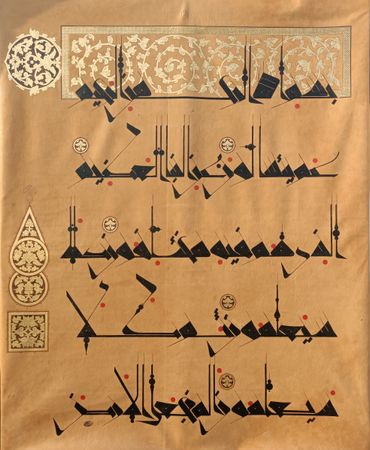 بسم الله الرحمن الرحيم
عم يتساءلون عن النبإ العظيم
الذي هم فيه مختلفون كلا
سيعلمون ثم كلا
سيعلمون ألم نجعل الأرض